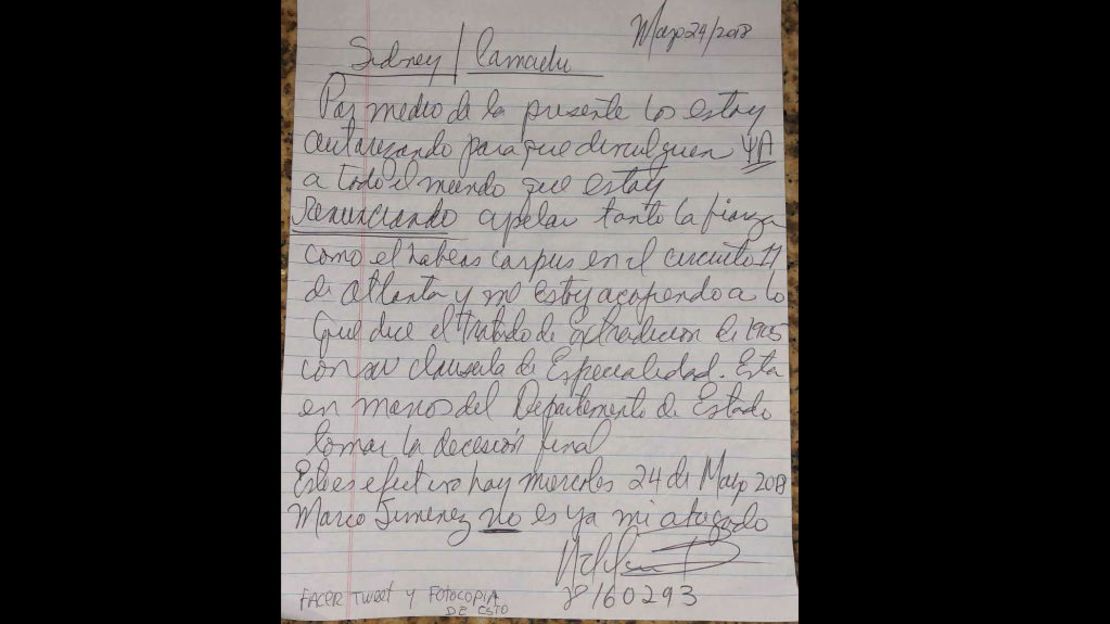 Mayo 24/2018
Sidney / Camadu
Por medio de la presente los estoy
autorizando para que divulguen YA
a todo el mundo que estoy
Renunciando apelar tanto la fianza
como el habeas corpus en el circuito 11
de Atlanta y me estoy acogiendo a lo
que dice el Tratado de Extradicion de 1905
con su clausula de Especialidad. Esta
en manos del Departamento de Estado
tomar la decesión final
Este es efectivo hoy miercoles 24 de Mayo 2018
Marco Jimenez no es ya mi abogado
160293
FACER TWEET Y FOTOCOPIA
DE ESTO